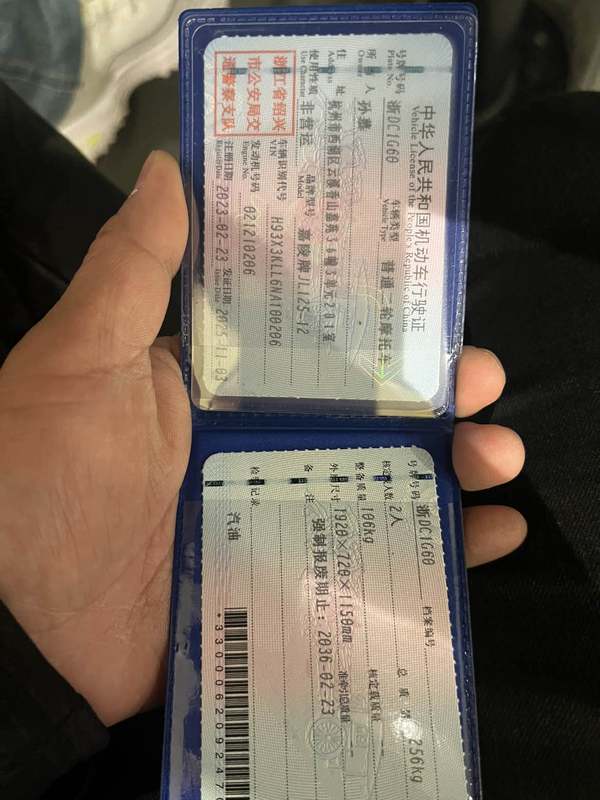 中华人民共和国机动车行驶证
Vehicle License of the People's Republic of China
号牌号码 浙DC1G60 车辆类型 普通二轮摩托车
Plate No. Vehicle Type
所有人 孙慕
Owner
住址 杭州市西湖区云溪香山嘉苑36幢3单元201室
Address
使用性质 非营运 品牌型号 嘉陵牌JL125-12
Use Character Model
浙江省绍兴
市公安局交
通警察支队
车辆识别代号 H93X3KLL6NA100206
VIN
发动机号码 021210206
Engine No.
注册日期 2023-02-23 发证日期 2023-11-03
Register Date Issue Date
号牌号码 浙DC1G60 档案编号
核定载人数 2人 总质量 256kg
整备质量 106kg 核定载质量
外廓尺寸 1920×720×1150mm 准牵引总质量
备注 强制报废期止：2036-02-23
检验记录
汽油